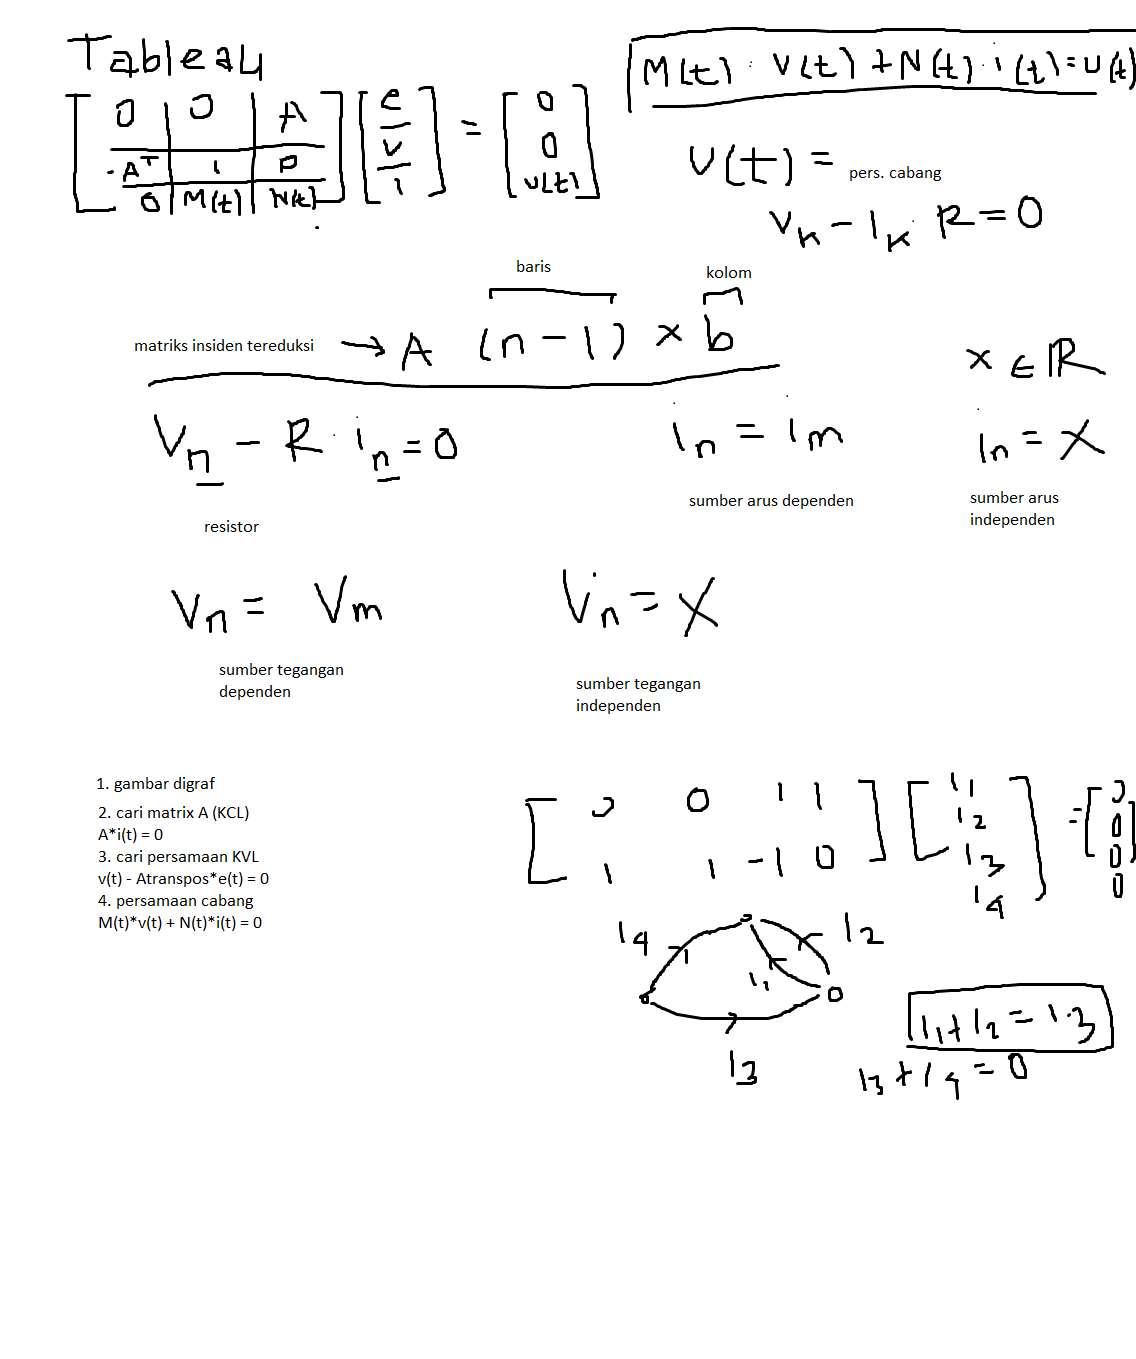 Tableau
M(t) · v(t) + N(t) · i(t) = u(t)
[ 0 | 0 | A ] [ e ] = [ 0 ]
[ -A^T | 1 | 0 ] [ v ] [ 0 ]
[ 0 | M(t) | N(t) ] [ i ] [ u(t) ]
u(t) = pers. cabang
v_k - i_k R = 0
baris kolom
matriks insiden tereduksi → A (n-1) × b
x ∈ ℝ
v_n - R · i_n = 0
i_n = i_m
i_n = x
resistor
sumber arus dependen
sumber arus
independen
v_n = v_m
v_n = x
sumber tegangan
dependen
sumber tegangan
independen
1. gambar digraf
2. cari matrix A (KCL)
A*i(t) = 0
3. cari persamaan KVL
v(t) - Atranspos*e(t) = 0
4. persamaan cabang
M(t)*v(t) + N(t)*i(t) = 0
[ 0 0 1 1 ] [ i1 ] = [ 0 ]
[ 1 1 -1 0 ] [ i2 ] [ 0 ]
[ i3 ] [ 0 ]
[ i4 ] [ 0 ]
i4
i2
i1
i3
i1 + i2 = i3
i3 + i4 = 0